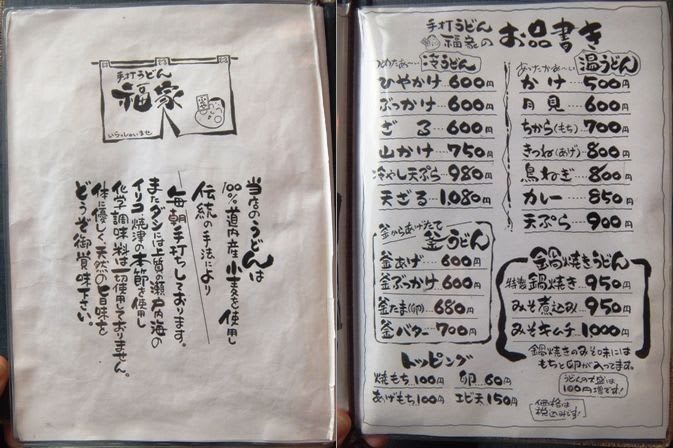 手打うどん
福家
いらっしゃいませ
当店のうどんは
100%道内産小麦を使用し
伝統の手法により
毎朝手打ちしております。
またダシには上質の瀬戸内海の
イリコ、焼津の本節を使用し
化学調味料は一切使用しておりません。
体に優しく、天然の旨味を
どうぞ御賞味下さい。
手打うどん
福家のお品書き
つめたぁ〜い冷うどん
ひやかけ…600円
ぶっかけ…600円
ざる…600円
山かけ…750円
冷やし天ぷら…980円
天ざる…1,080円
あったかぁ〜い温うどん
かけ…500円
月見…600円
ちから(もち)…700円
きつね(あげ)…800円
鳥ねぎ…800円
カレー…850円
天ぷら…900円
釜からあげたて
釜うどん
釜あげ…600円
釜ぶっかけ…600円
釜たま(卵)…680円
釜バター…700円
鍋焼きうどん
特製鍋焼き…950円
みそ煮込み…950円
みそキムチ…1000円
鍋焼きのみそ味には
もちと卵が入ってます。
トッピング
焼もち…100円 卵…60円
あげもち…100円 エビ天150円
うどんの大盛は
100円増です!
価格は
税込みです!